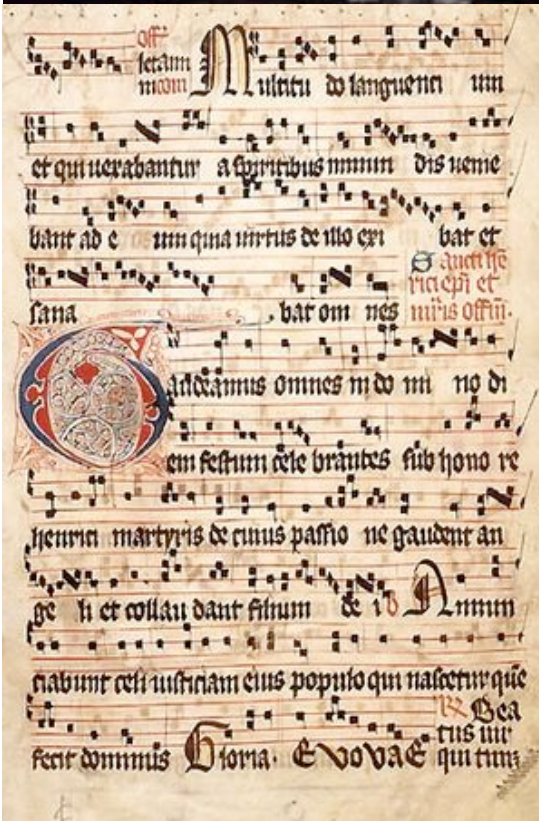 Off
letam
m com Multitu do languenti um
et qui uexabantur a spiritibus inmun dis uenie
bant ad e um quia uirtus de illo exi bat et
sana bat om nes
Sancti he
rici epi et
mris offm.
Gaudeamus omnes in do mi no di
em festum cele brantes sub hono re
henrici martyris de cuius passio ne gaudent an
ge li et collau dant filium de i Annun
ciabunt celi iusticiam eius populo qui nascetur que
fecit dominus Gloria. Evovae
Bea
tus uir
qui tim